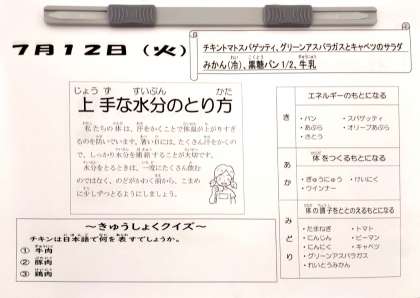 7月12日(火)
チキントマトスパゲッティ、グリーンアスパラガスとキャベツのサラダ
みかん(冷)、黒糖パン1/2、牛乳
上手な水分のとり方
私たちの体は、汗をかくことで体温が上がりすぎ
るのを防いでいます。暑い日には、たくさん汗をかくの
で、しっかり水分を補給することが大切です。
水分をとるときは、一度にたくさん飲む
のではなく、のどがかわく前から、こまめ
に少しずつとるようにしましょう。
~きゅうしょくクイズ~
チキンは日本語で何を表すでしょうか。
① 牛肉
② 豚肉
③ 鶏肉
き
エネルギーのもとになる
・パン ・スパゲティ
・あぶら ・オリーブあぶら
・さとう
あか
体をつくるもとになる
・ぎゅうにゅう ・けいにく
・ウインナー
みどり
体の調子をととのえるもとになる
・たまねぎ ・トマト
・にんじん ・ピーマン
・にんにく ・キャベツ
・グリーンアスパラガス
・れいとうみかん